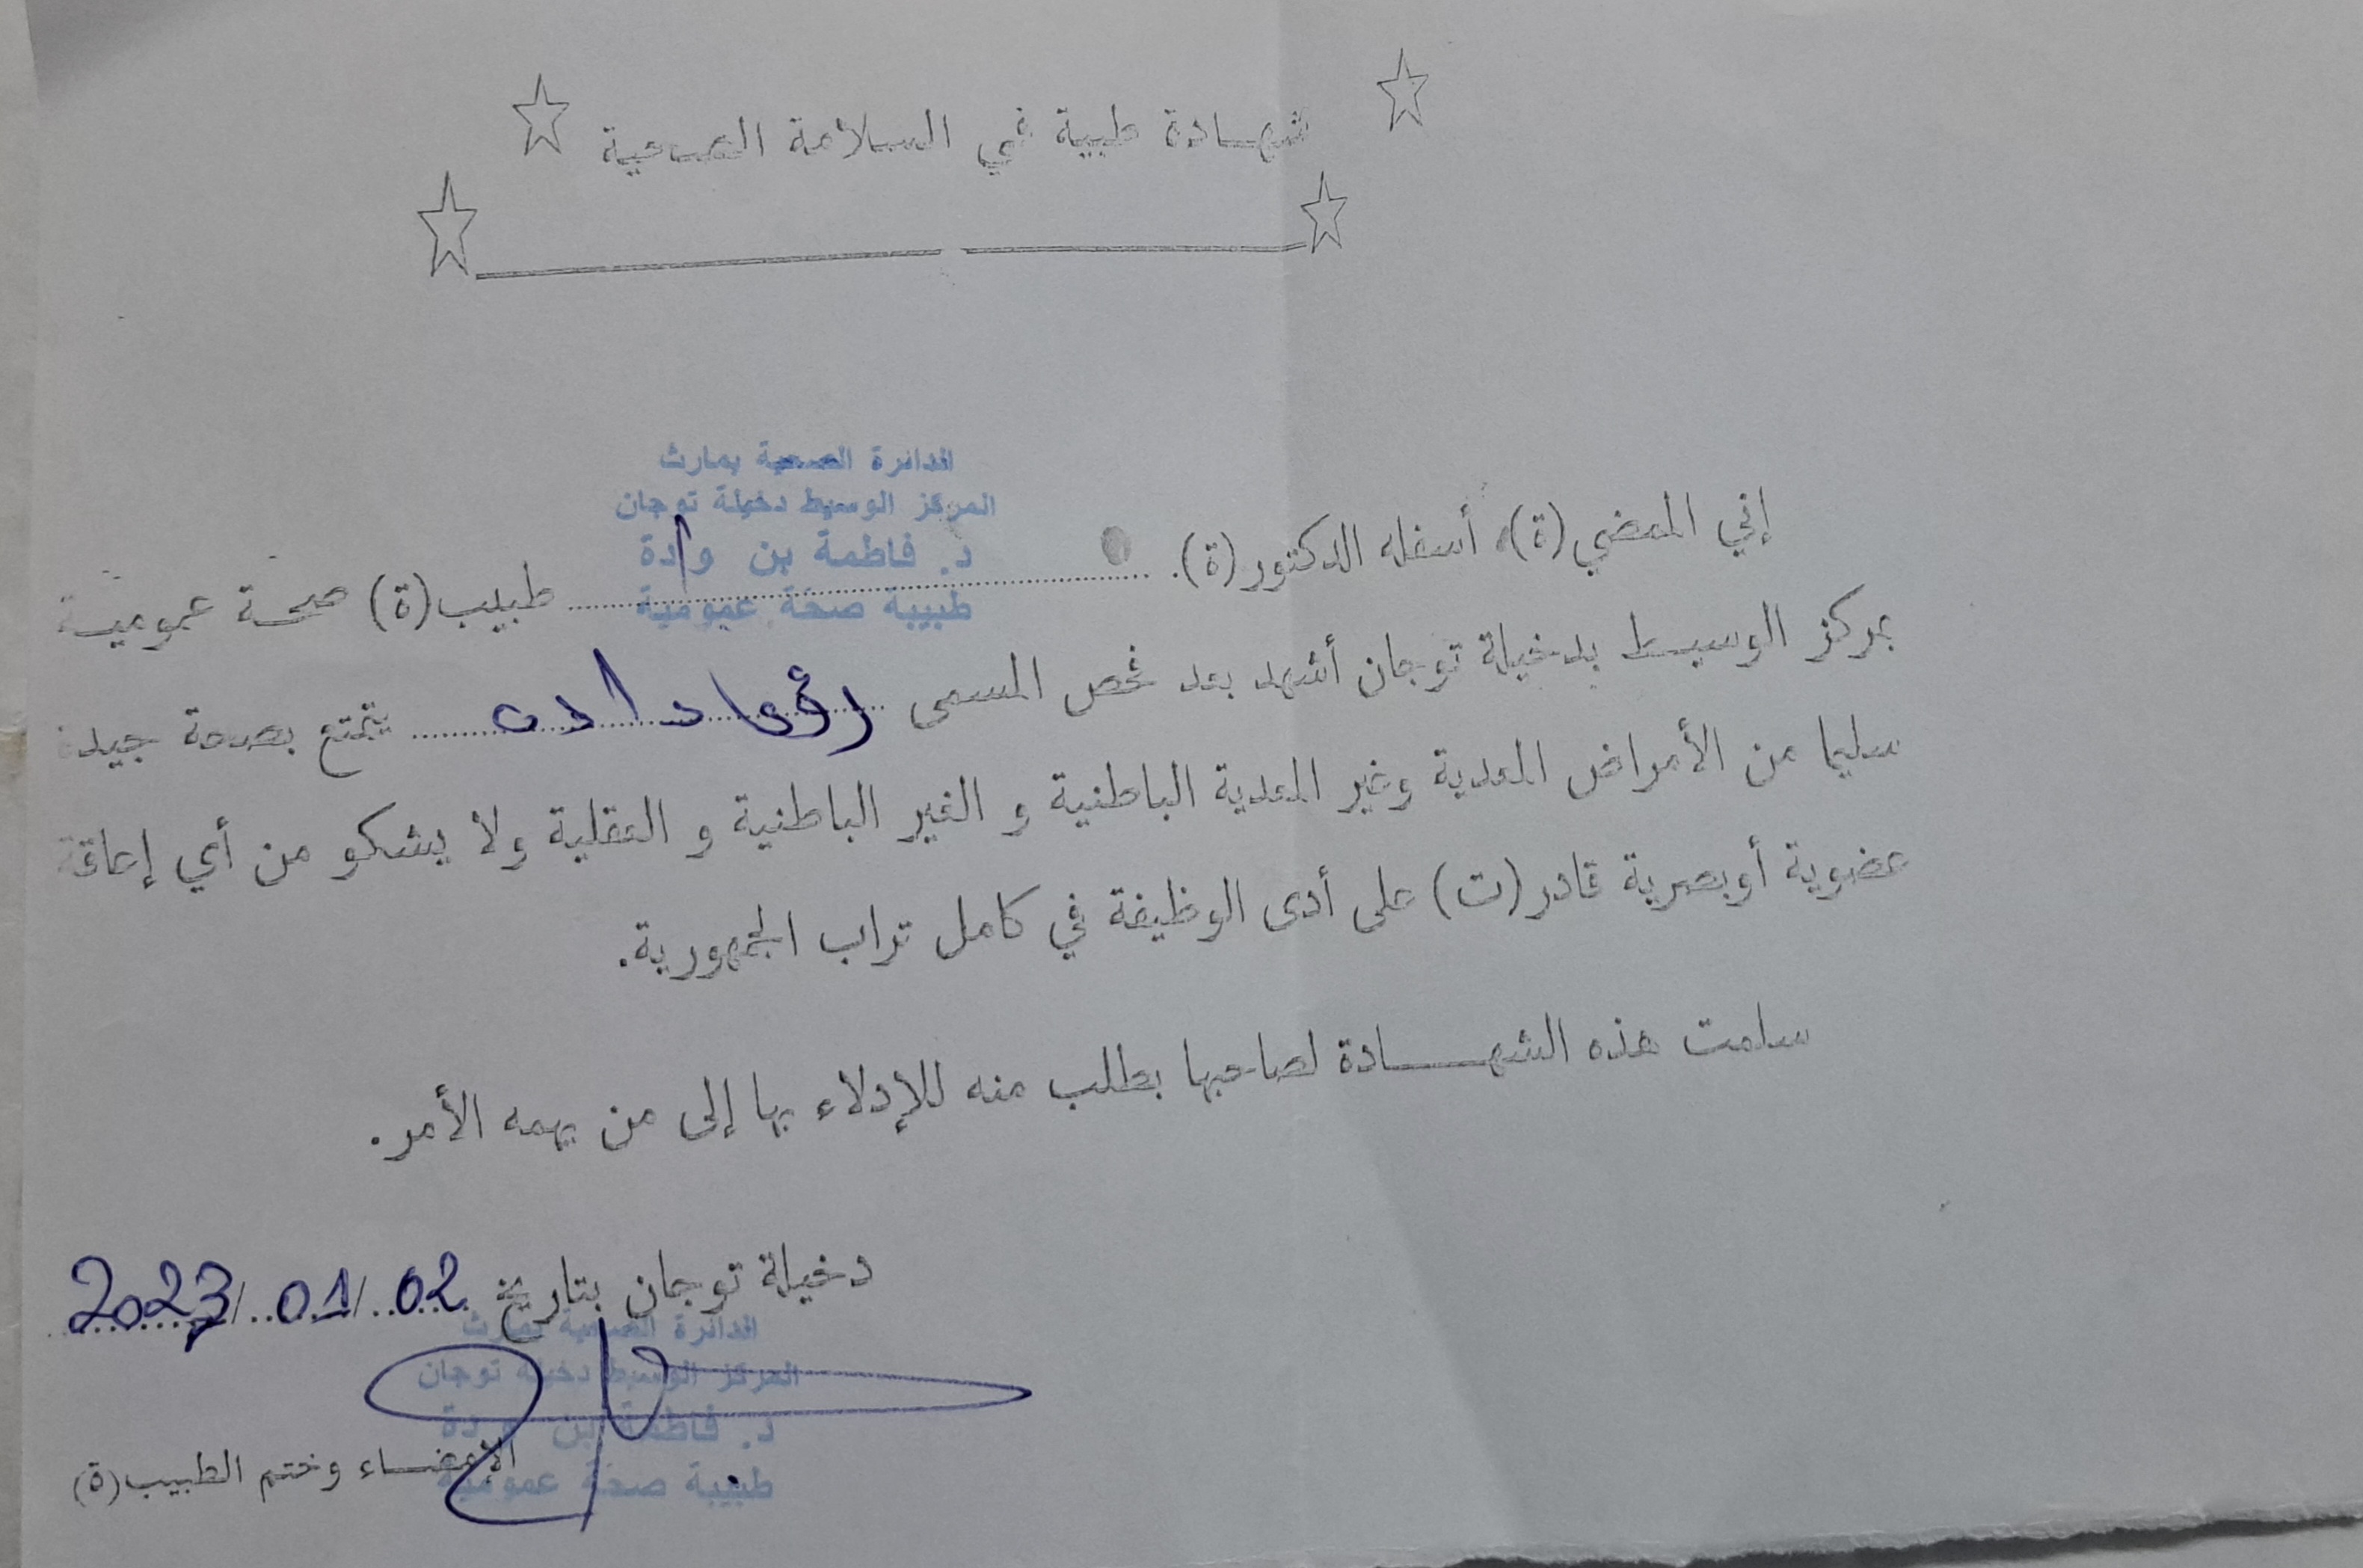 شهادة طبية في السلامة الصحية
الدائرة الصحية بمارث
المركز الوسيط دخيلة توجان
د. فاطمة بن وادة
طبيبة صحة عمومية
إني الممضي(ة) أسفله الدكتور(ة). طبيب(ة) صحة عمومية
بمركز الوسيط بدخيلة توجان أشهد بعد فحص المسمى رؤى دادة يتمتع بصحة جيدة
سليما من الأمراض المعدية وغير المعدية الباطنية و الغير الباطنية و العقلية ولا يشكو من أي إعاقة
عضوية أوبصرية قادر(ت) على أدى الوظيفة في كامل تراب الجمهورية.
سلمت هذه الشهادة لصاحبها بطلب منه للإدلاء بها إلى من يهمه الأمر.
دخيلة توجان بتاريخ 02/01/2023
الدائرة الصحية بمارث
المركز الوسيط دخيلة توجان
د. فاطمة بن دة
طبيبة صحة عمومية
الإمضاء وختم الطبيب(ة)